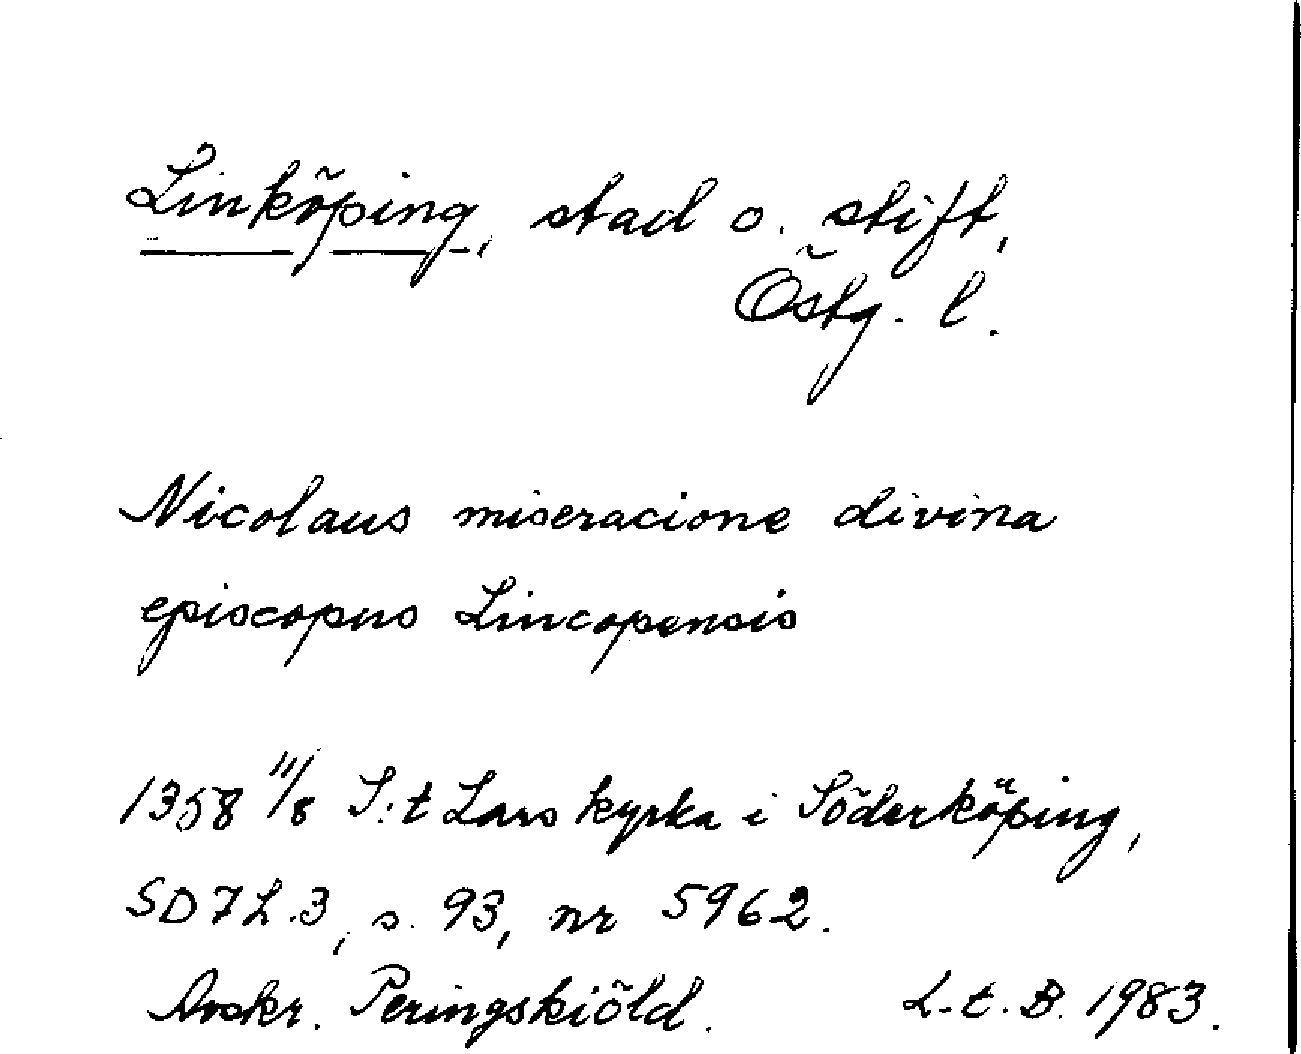 Linköping, stad o. stift,
Östg. l.
Nicolaus miseracione divina
episcopus Lincopensis
1358 11/8 S:t Lars kyrka i Söderköping,
SD 7 L.3, s. 93, nr 5962.
Avskr. Peringskiöld. L.t.B. 1983.